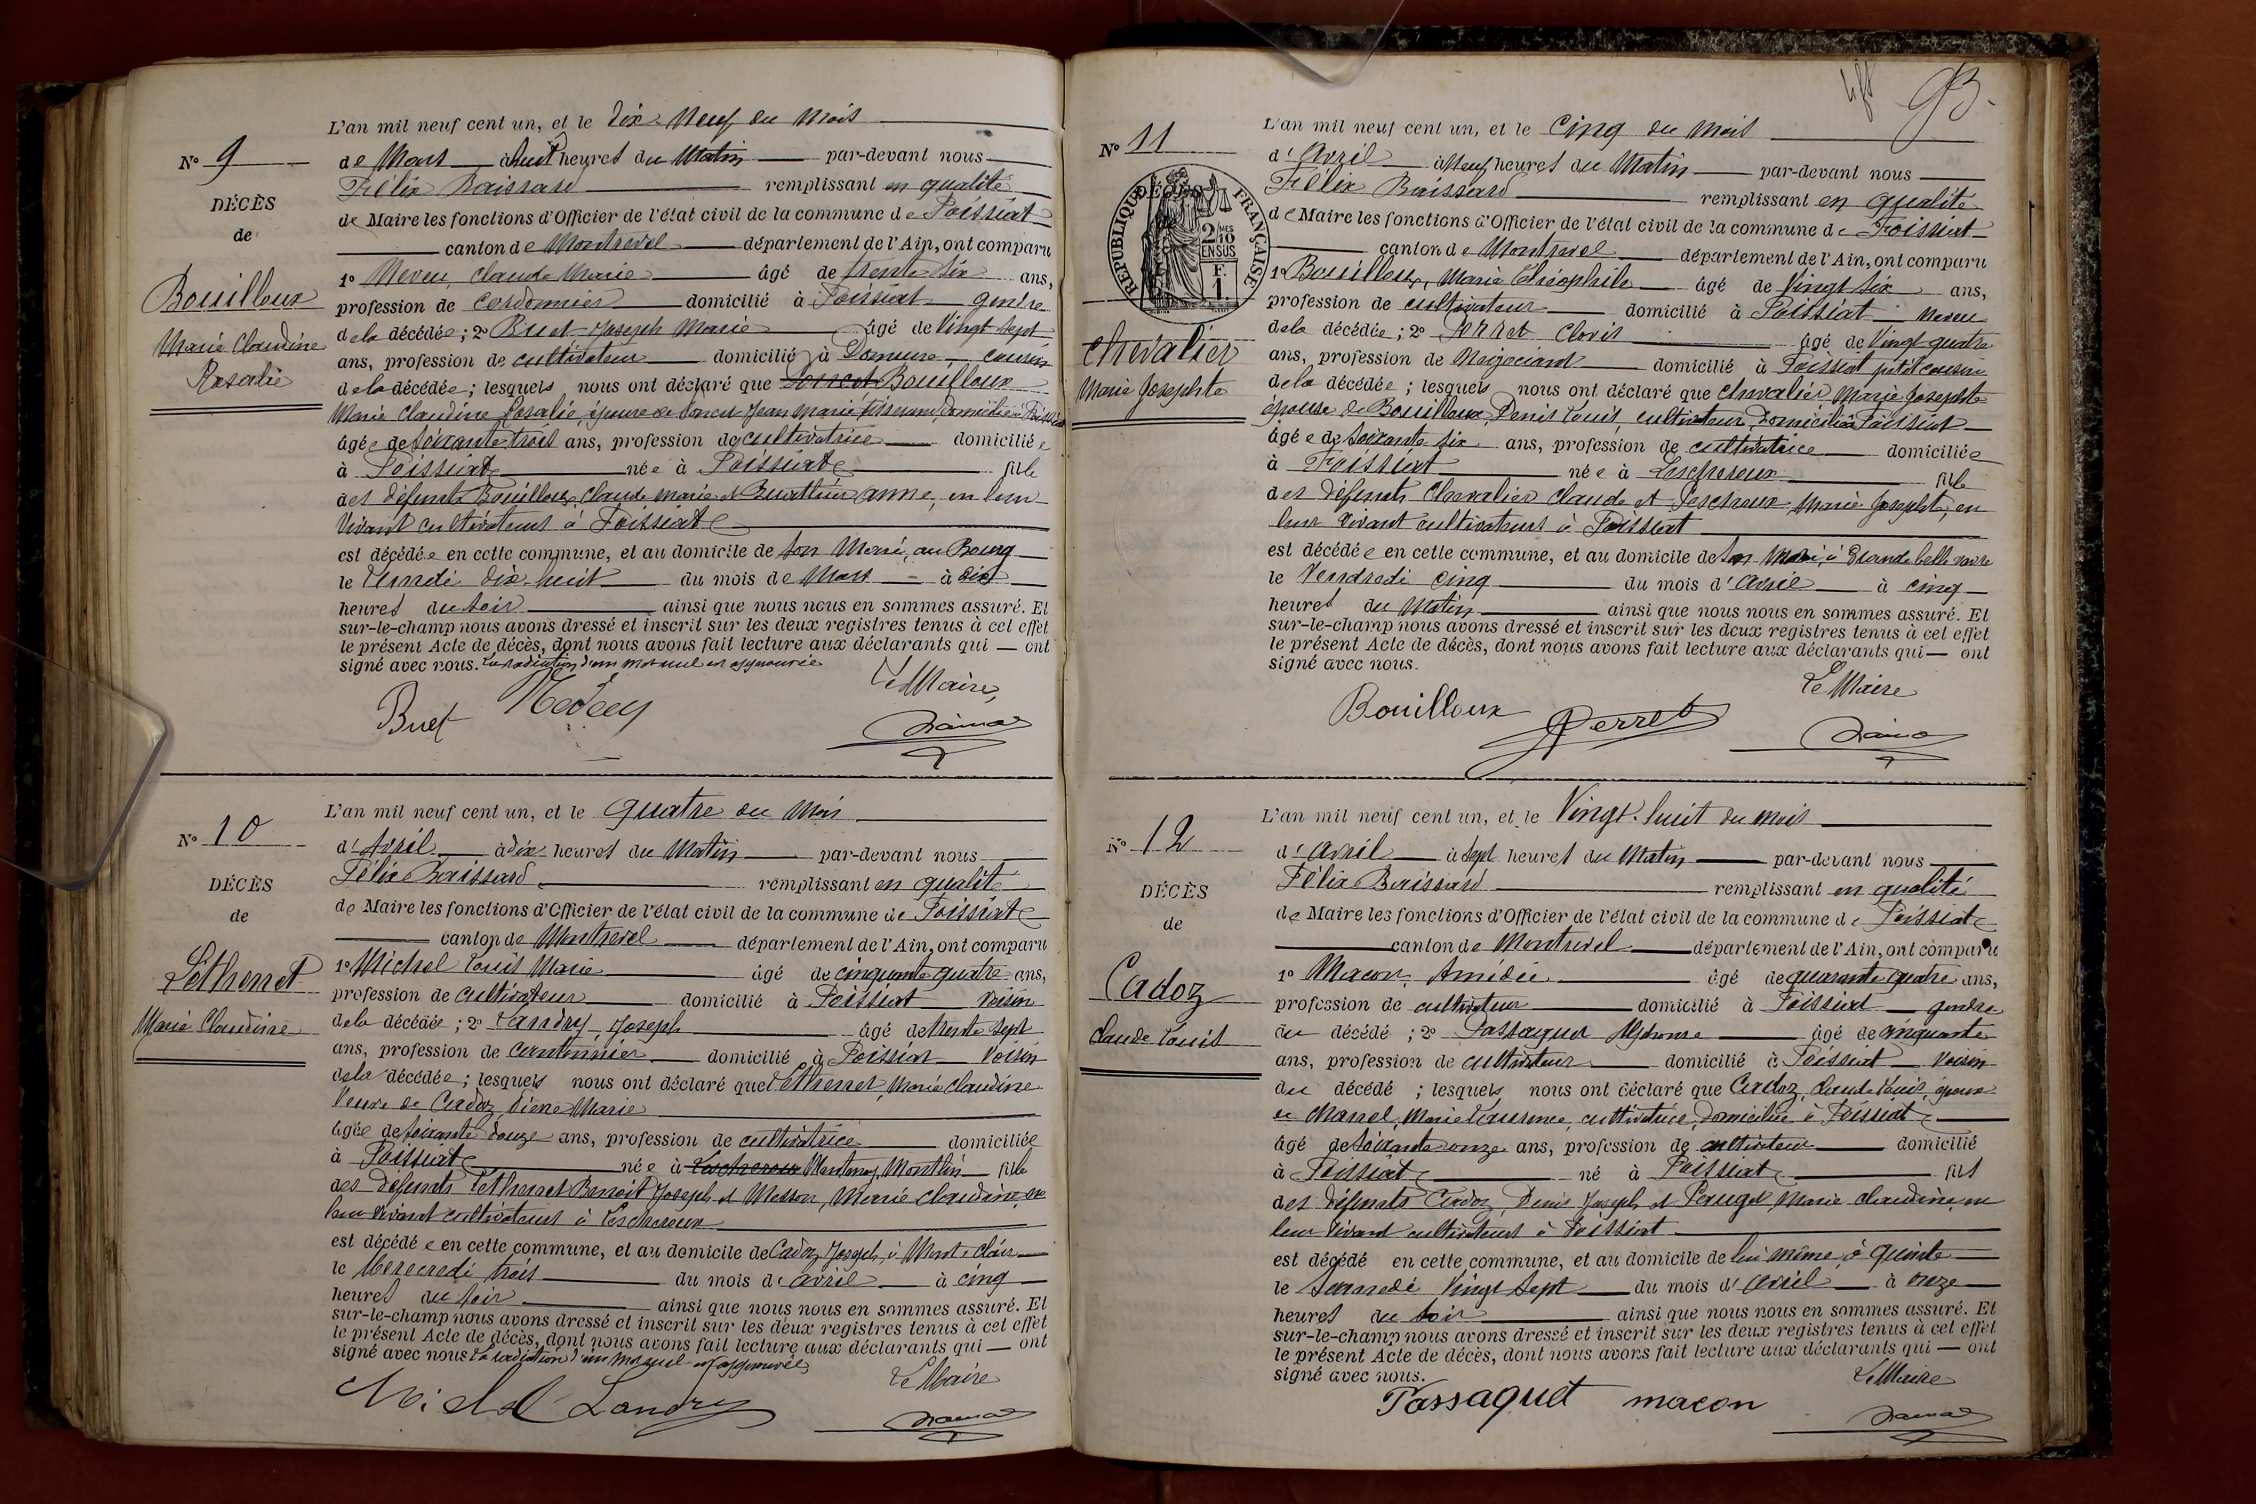 L'an mil neuf cent un, et le dix-neuf du mois
N° 9
de Mars à huit heures du Matin par-devant nous
Félix Baissard remplissant en qualité
DÉCÈS
de Maire les fonctions d'Officier de l'état civil de la commune de Foissiat
de
canton de Montrevel département de l'Ain, ont comparu
1° Neveu, Claude Marie âgé de trente six ans,
Bouilloux
profession de cordonnier domicilié à Foissiat gendre
de la décédée ; 2° Buet Joseph Marie âgé de Vingt sept
Marie Claudine
ans, profession de cultivateur domicilié à cousin
Rosalie
de la décédée ; lesquels nous ont déclaré que Bouilloux
Marie Claudine Rosalie, épouse de Jean Marie domicilié à Foissiat
âgée de soixante trois ans, profession de cultivatrice domiciliée
à Foissiat née à Foissiat fille
des défunts Bouilloux, Claude Marie et anne, en leur
vivant cultivateurs à Foissiat
est décédée en cette commune, et au domicile de son Mari, au Bourg
le dix-huit du mois de Mars à dix
heures du soir ainsi que nous nous en sommes assuré. Et
sur-le-champ nous avons dressé et inscrit sur les deux registres tenus à cet effet
le présent Acte de décès, dont nous avons fait lecture aux déclarants qui ont
signé avec nous. La radiation d'un mot nul est approuvée
Le Maire,
Buet
L'an mil neuf cent un, et le quatre du Mois
N° 10
d'Avril à dix heures du Matin par-devant nous
Félix Baissard remplissant en qualité
DÉCÈS
de Maire les fonctions d'Officier de l'état civil de la commune de Foissiat
de
canton de Montrevel département de l'Ain, ont comparu
Lethenet
1° Michel Louis Marie âgé de cinquante quatre ans,
profession de cultivateur domicilié à Foissiat voisin
Marie Claudine
de la décédée ; 2° Landry, Joseph âgé de trente sept
ans, profession de cantonnier domicilié à Foissiat voisin
de la décédée ; lesquels nous ont déclaré que Lethenet, Marie Claudine
Veuve de Cadoz, Marie
âgée de soixante douze ans, profession de cultivatrice domiciliée
à Foissiat née à Lescheroux Mantenay Montlin fille
des défunts Lethenet Benoit Joseph et Marie Claudine en
leur vivant cultivateurs à Lescheroux
est décédée en cette commune, et au domicile de Cadoz, Joseph, à
le Mercredi trois du mois d'avril à cinq
heures du soir ainsi que nous nous en sommes assuré. Et
sur-le-champ nous avons dressé et inscrit sur les deux registres tenus à cet effet
le présent Acte de décès, dont nous avons fait lecture aux déclarants qui ont
signé avec nous La radiation d'un mot nul est approuvée
Le Maire
Michel Landry
93
L'an mil neuf cent un, et le Cinq du mois
N° 11
d'Avril à Neuf heures du Matin par-devant nous
Félix Baissard remplissant en qualité
DÉCÈS
RÉPUBLIQUE FRANÇAISE
2/10 MES EN SUS
F. 1.
de Maire les fonctions d'Officier de l'état civil de la commune de Foissiat
canton de Montrevel département de l'Ain, ont comparu
1° Bouilloux, Marie Théophile âgé de Vingt six ans,
profession de cultivateur domicilié à Foissiat neveu
Chevalier
de la décédée ; 2° Perret Clovis âgé de Vingt quatre
ans, profession de Négociant domicilié à Foissiat petit cousin
Marie Josephte
de la décédée ; lesquels nous ont déclaré que Chevalier Marie Josephte
épouse de Bouilloux, Denis Louis, cultivateur, domicilié à Foissiat
âgée de soixante six ans, profession de cultivatrice domiciliée
à Foissiat née à Lescheroux fille
des défunts Chevalier Claude et Marie Josephte, en
leur vivant cultivateurs à Foissiat
est décédée en cette commune, et au domicile de son Mari, à
le Vendredi cinq du mois d'avril à cinq
heures du Matin ainsi que nous nous en sommes assuré. Et
sur-le-champ nous avons dressé et inscrit sur les deux registres tenus à cet effet
le présent Acte de décès, dont nous avons fait lecture aux déclarants qui ont
signé avec nous.
Le Maire
Bouilloux Perret
L'an mil neuf cent un, et le Vingt-huit du mois
N° 12
d'Avril à sept heures du Matin par-devant nous
Félix Baissard remplissant en qualité
DÉCÈS
de Maire les fonctions d'Officier de l'état civil de la commune de Foissiat
de
canton de Montrevel département de l'Ain, ont comparu
Cadoz
1° Macon, Amédée âgé de quarante quatre ans,
profession de cultivateur domicilié à Foissiat gendre
Claude Louis
du décédé ; 2° Passaquet Alphonse âgé de cinquante
ans, profession de cultivateur domicilié à Foissiat voisin
du décédé ; lesquels nous ont déclaré que Cadoz, Claude Louis, époux
de Marie Laurence, cultivatrice, domiciliée à Foissiat
âgé de soixante onze ans, profession de cultivateur domicilié
à Foissiat né à Foissiat fils
des défunts Cadoz, Denis Joseph et Marie Claudine, en
leur vivant cultivateurs à Foissiat
est décédé en cette commune, et au domicile de lui même, à
le Samedi Vingt sept du mois d'Avril à onze
heures du soir ainsi que nous nous en sommes assuré. Et
sur-le-champ nous avons dressé et inscrit sur les deux registres tenus à cet effet
le présent Acte de décès, dont nous avons fait lecture aux déclarants qui ont
signé avec nous.
Le Maire
Passaquet macon